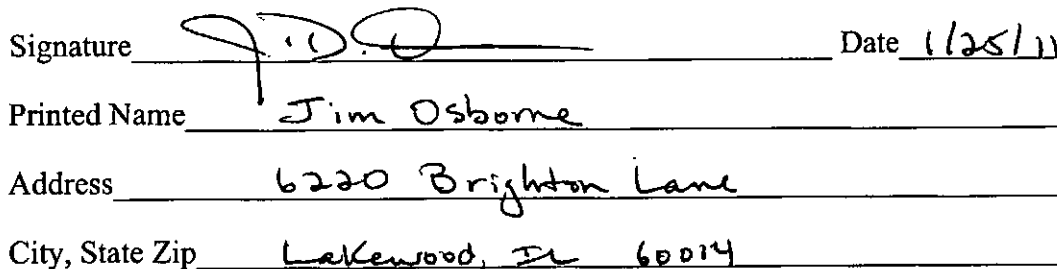 Signature J.D.O Date 1/25/11
Printed Name Jim Osborne
Address 6220 Brighton Lane
City, State Zip Lakewood, IL 60014